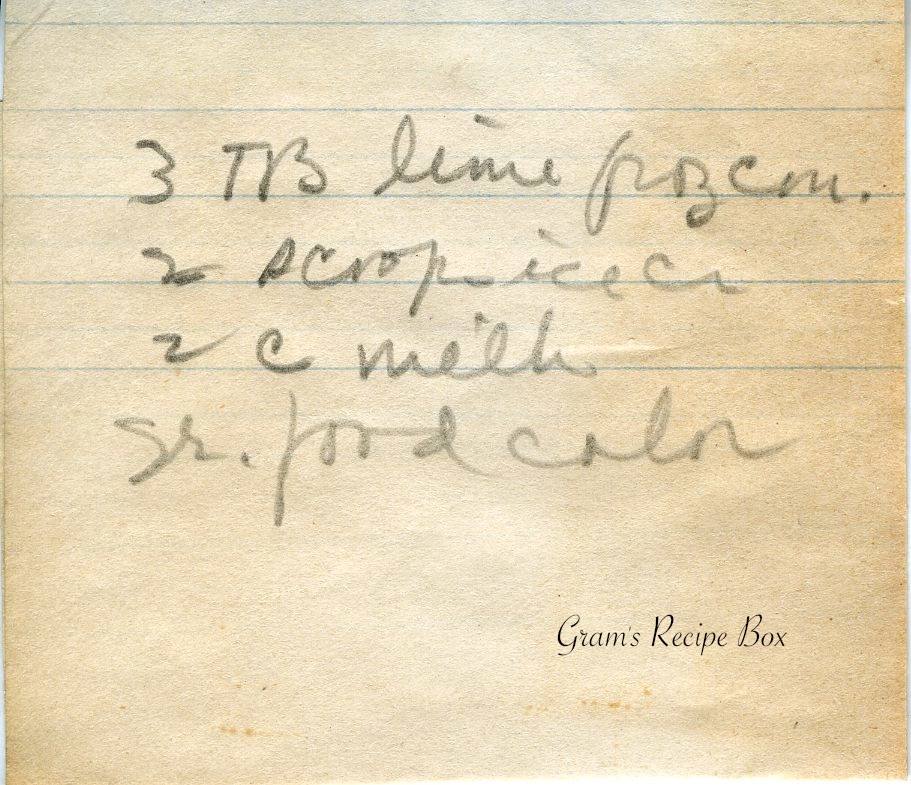 3 TB lime froz con.
2 scoop ice cr
2 c milk
gr. food color
Gram's Recipe Box